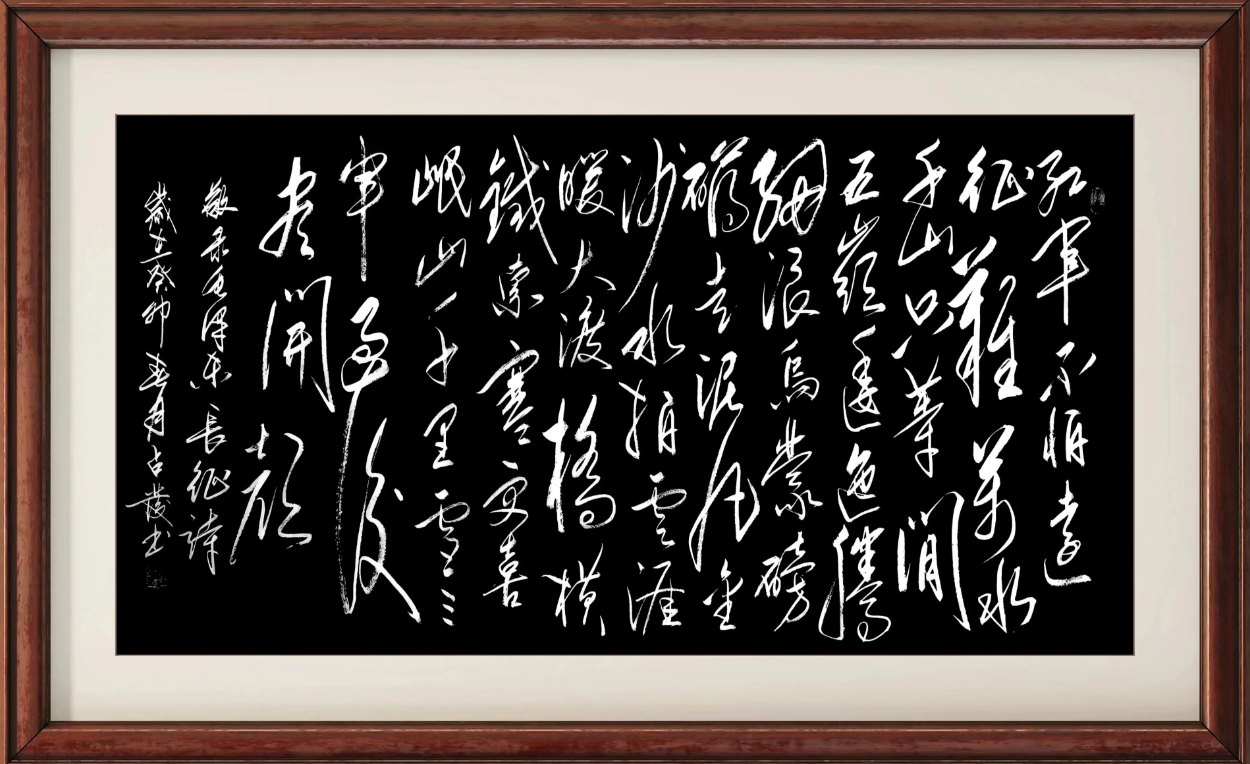 紅軍不怕遠
征難萬水
千山只等閒
五嶺逶迤騰
細浪烏蒙磅
礴走泥丸金
沙水拍雲涯
暖大渡橋橫
鐵索寒更喜
岷山千里雪三
軍過後
盡開顏
敬录毛澤東長征詩
歲在癸卯春月占發書